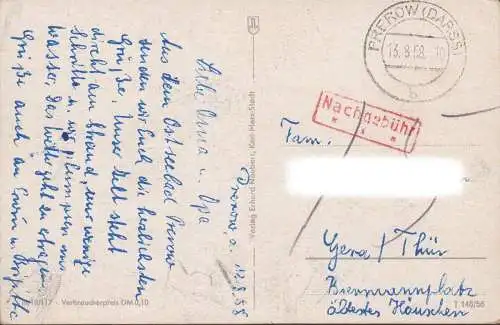 Prerow, d. 12.8.58
Liebe Oma u. Opa
Aus dem Ostseebad Prerow
senden wir Euch die herzlichsten
Grüße. Unser Zelt steht
direkt am Strand, nur wenige
Schritte u. wir plumpsen ins
Wasser, das
Grüße auch an Erwin u. Brigitte
Verbraucherpreis DM 0,10
Verlag Erhard Neubert, Karl-Marx-Stadt
PREROW (DARSS)
13.8.58.-10
b
Nachgebühr
Fam.
Gera / Thür
Biermannplatz
ältestes Häuschen